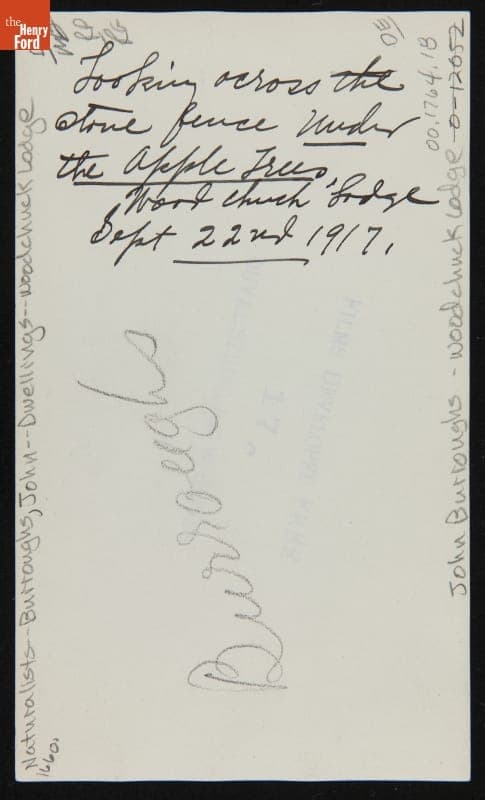 the
Henry
Ford
Looking across the
stone fence Under
the Apple Trees,
"Wood chuck" Lodge
Sept 22nd 1917.
Burroughs
Naturalists--Burroughs, John--Dwellings--Woodchuck Lodge
1660.
John Burroughs - Woodchuck Lodge 0-12652
00.1764.18